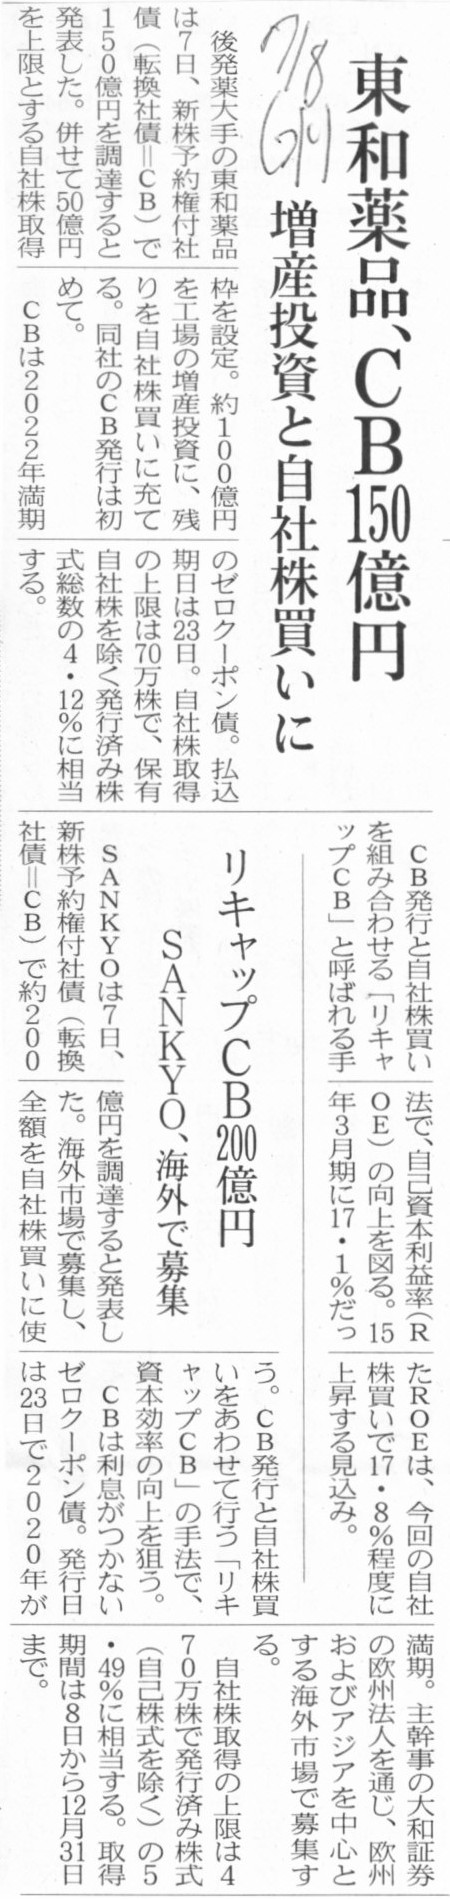 東和薬品、CB150億円
増産投資と自社株買いに
7/8
後発薬大手の東和薬品
は7日、新株予約権付社
債(転換社債=CB)で
150億円を調達すると
発表した。併せて50億円
を上限とする自社株取得
枠を設定。約100億円
を工場の増産投資に、残
りを自社株買いに充て
る。同社のCB発行は初
めて。
CBは2022年満期
のゼロクーポン債。払込
期日は23日。自社株取得
の上限は70万株で、保有
自社株を除く発行済み株
式総数の4・12%に相当
する。
CB発行と自社株買い
を組み合わせる「リキャ
ップCB」と呼ばれる手
法で、自己資本利益率(R
OE)の向上を図る。15
年3月期に17・1%だっ
たROEは、今回の自社
株買いで17・8%程度に
上昇する見込み。
リキャップCB200億円
SANKYO、海外で募集
SANKYOは7日、
新株予約権付社債(転換
社債=CB)で約200
億円を調達すると発表し
た。海外市場で募集し、
全額を自社株買いに使
う。CB発行と自社株買
いをあわせて行う「リキ
ャップCB」の手法で、
資本効率の向上を狙う。
CBは利息がつかない
ゼロクーポン債。発行日
は23日で2020年が
満期。主幹事の大和証券
の欧州法人を通じ、欧州
およびアジアを中心と
する海外市場で募集す
る。
自社株取得の上限は4
70万株で発行済み株式
(自己株式を除く)の5
・49%に相当する。取得
期間は8日から12月31日
まで。